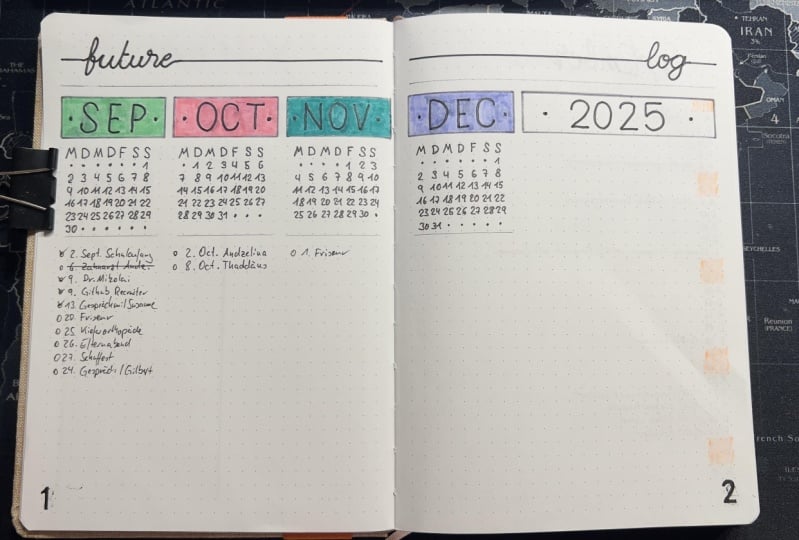 future
log
SEP
M D M D F S S
1
2 3 4 5 6 7 8
9 10 11 12 13 14 15
16 17 18 19 20 21 22
23 24 25 26 27 28 29
30
2. Sept. Schulanfang
6. Zahnarzt
9. Dr. Mikolai
9. Github Recruiter
13. Gespräch mit Susanne
20. Friseur
25. Kieferorthopäde
26. Elternabend
27.
24. Gespräch / Gilbert
OCT
M D M D F S S
1 2 3 4 5 6
7 8 9 10 11 12 13
14 15 16 17 18 19 20
21 22 23 24 25 26 27
28 29 30 31
2. Oct. Andzelina
8. Oct. Thaddäus
NOV
M D M D F S S
1 2 3
4 5 6 7 8 9 10
11 12 13 14 15 16 17
18 19 20 21 22 23 24
25 26 27 28 29 30
1. Friseur
DEC
M D M D F S S
1
2 3 4 5 6 7 8
9 10 11 12 13 14 15
16 17 18 19 20 21 22
23 24 25 26 27 28 29
30 31
2025
1
2
ATLANTIC
SYRIA
TEHRAN
IRAN
3%
OMAN
4
Socotra
SEYCHELLES
Reunion
(FRANCE)